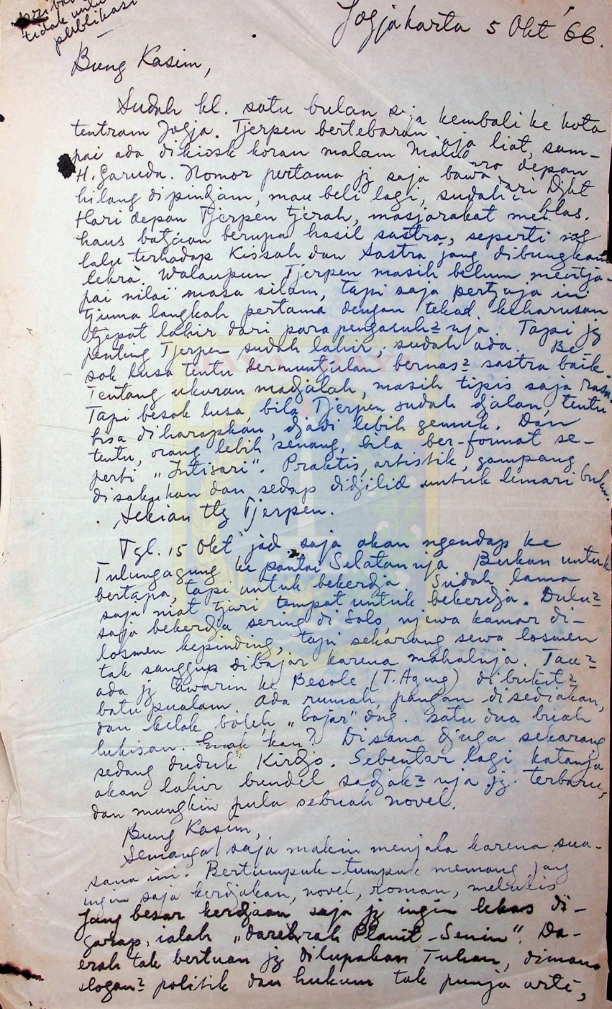 pribadi
tidak untuk
publikasi
Jogjakarta 5 Okt '66.
Bung Kasim,
Sudah kl. satu bulan saja kembali ke kota
tentram Jogja. Tjerpen bertebaran saja liat, sam-
pai ada dikiosk koran malam Malioboro depan
H. Garuda. Nomor pertama jg saja bawa dari Dkt
hilang dipindjam, mau beli lagi, sudah
Hari depan Tjerpen tjerah, masjarakat
haus batjaan berupa hasil sastra, seperti
lalu terhadap Kissah dan Sastra jang dibungkam
Lekra. Walaupun Tjerpen masih belum mentja-
pai nilai masa silam, tapi saja pertjaja ini
tjuma langkah pertama dengan tekad keharusan
tjepat lahir dari para pengasuh2 nja. Tapi jg
penting Tjerpen sudah lahir, sudah ada. Be-
sok lusa tentu bermuntjulan bernas2 sastra baik.
Tentang ukuran madjalah, masih tipis saja rasa.
Tapi besok lusa, bila Tjerpen sudah djalan, tentu
bisa diharapkan, djadi lebih gemuk. Dan
tentu, orang lebih senang, bila ber-format se-
perti "Intisari". Praktis, artistik, gampang
disakukan dan sedap didjilid untuk lemari buku.
Sekian ttg Tjerpen.
Tgl. 15 Okt jad. saja akan ngendap ke
Tulungagung ke pantai Selatannja. Bukan untuk
bertapa, tapi untuk bekerdja. Sudah lama
saja niat tjari tempat untuk bekerdja. Dulu2
saja bekerdja sering di Solo, njewa kamar di-
losmen kepinding, tapi sekarang sewa losmen
tak sanggup dibajar karena mahalnja. Tau2
ada jg tawarin ke Besole (T. Agung) di bukit2
batu pualam. Ada rumah, pangan disediakan,
dan kelak boleh "bajar" dng. satu dua buah
lukisan. Enak 'kan? Disana djuga sekarang
sedang duduk Kirdjo. Sebentar lagi katanja
akan lahir bundel sadjak2 nja jg terbaru,
dan mungkin pula sebuah novel.
Bung Kasim,
Semangat saja makin menjala karena sua-
sana ini. Bertumpuk-tumpuk memang jang
ingin saja kerdjakan, novel, roman, melukis
Jang besar kerdjaan saja jg ingin lekas di-
garap, ialah "daerah Planit-Senin". Da-
erah tak bertuan jg dilupakan Tuhan, dimana
slogan2 politik dan hukum tak punja arti,